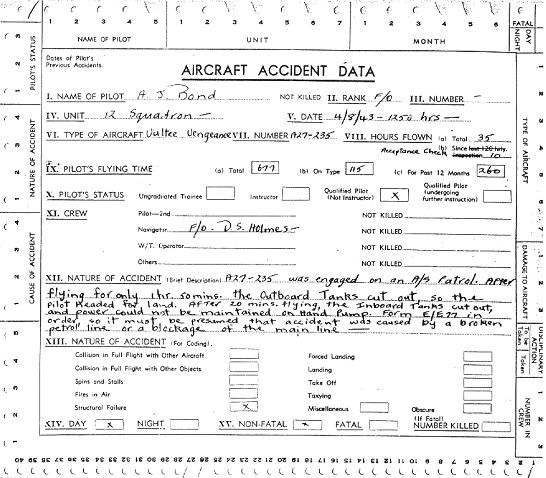 1 2 3 4 5 1 2 3 4 5 1 2 3 4 5 6 1 2
NAME OF PILOT UNIT MONTH FATAL DAY NIGHT
Dates of Pilot's
Previous Accidents.
AIRCRAFT ACCIDENT DATA
I. NAME OF PILOT A. J. Bond NOT KILLED II. RANK F/O III. NUMBER –
IV. UNIT 12 Squadron – V. DATE 4/8/43 – 1250 hrs –
VI. TYPE OF AIRCRAFT Vultee Vengeance VII. NUMBER A27-235 VIII. HOURS FLOWN (a) Total 35
Acceptance Check (b) Since last 120 hrly. inspection 10
IX. PILOT'S FLYING TIME (a) Total 677 (b) On Type 115 (c) For Past 12 Months 260
X. PILOT'S STATUS Ungraduated Trainee Instructor Qualified Pilot (Not Instructor) X Qualified Pilot (undergoing further instruction)
XI. CREW Pilot—2nd NOT KILLED
Navigator F/O. D.S. Holmes – NOT KILLED
W/T. Operator NOT KILLED
Others NOT KILLED
XII. NATURE OF ACCIDENT (Brief Description) A27-235 was engaged on an A/S Patrol. After
flying for only 1 hr. 50 mins. the Outboard Tanks cut out, so the
pilot headed for land. After 20 mins. flying, the Inboard Tanks cut out,
and power could not be maintained on Hand Pump. Form E/E77 in
order, so it must be presumed that accident was caused by a broken
petrol line or a blockage of the main line —
XIII. NATURE OF ACCIDENT (For Coding).
Collision in Full Flight with Other Aircraft Forced Landing
Collision in Full Flight with Other Objects Landing
Spins and Stalls Take Off
Fires in Air Taxying
Structural Failure X Miscellaneous Obscure (If Fatal)
XIV. DAY X NIGHT XV. NON-FATAL X FATAL NUMBER KILLED
PILOT'S STATUS
NATURE OF ACCIDENT
CAUSE OF ACCIDENT
TYPE OF AIRCRAFT
DAMAGE TO AIRCRAFT
DISCIPLINARY ACTION
To be Taken
Taken
NUMBER IN CREW